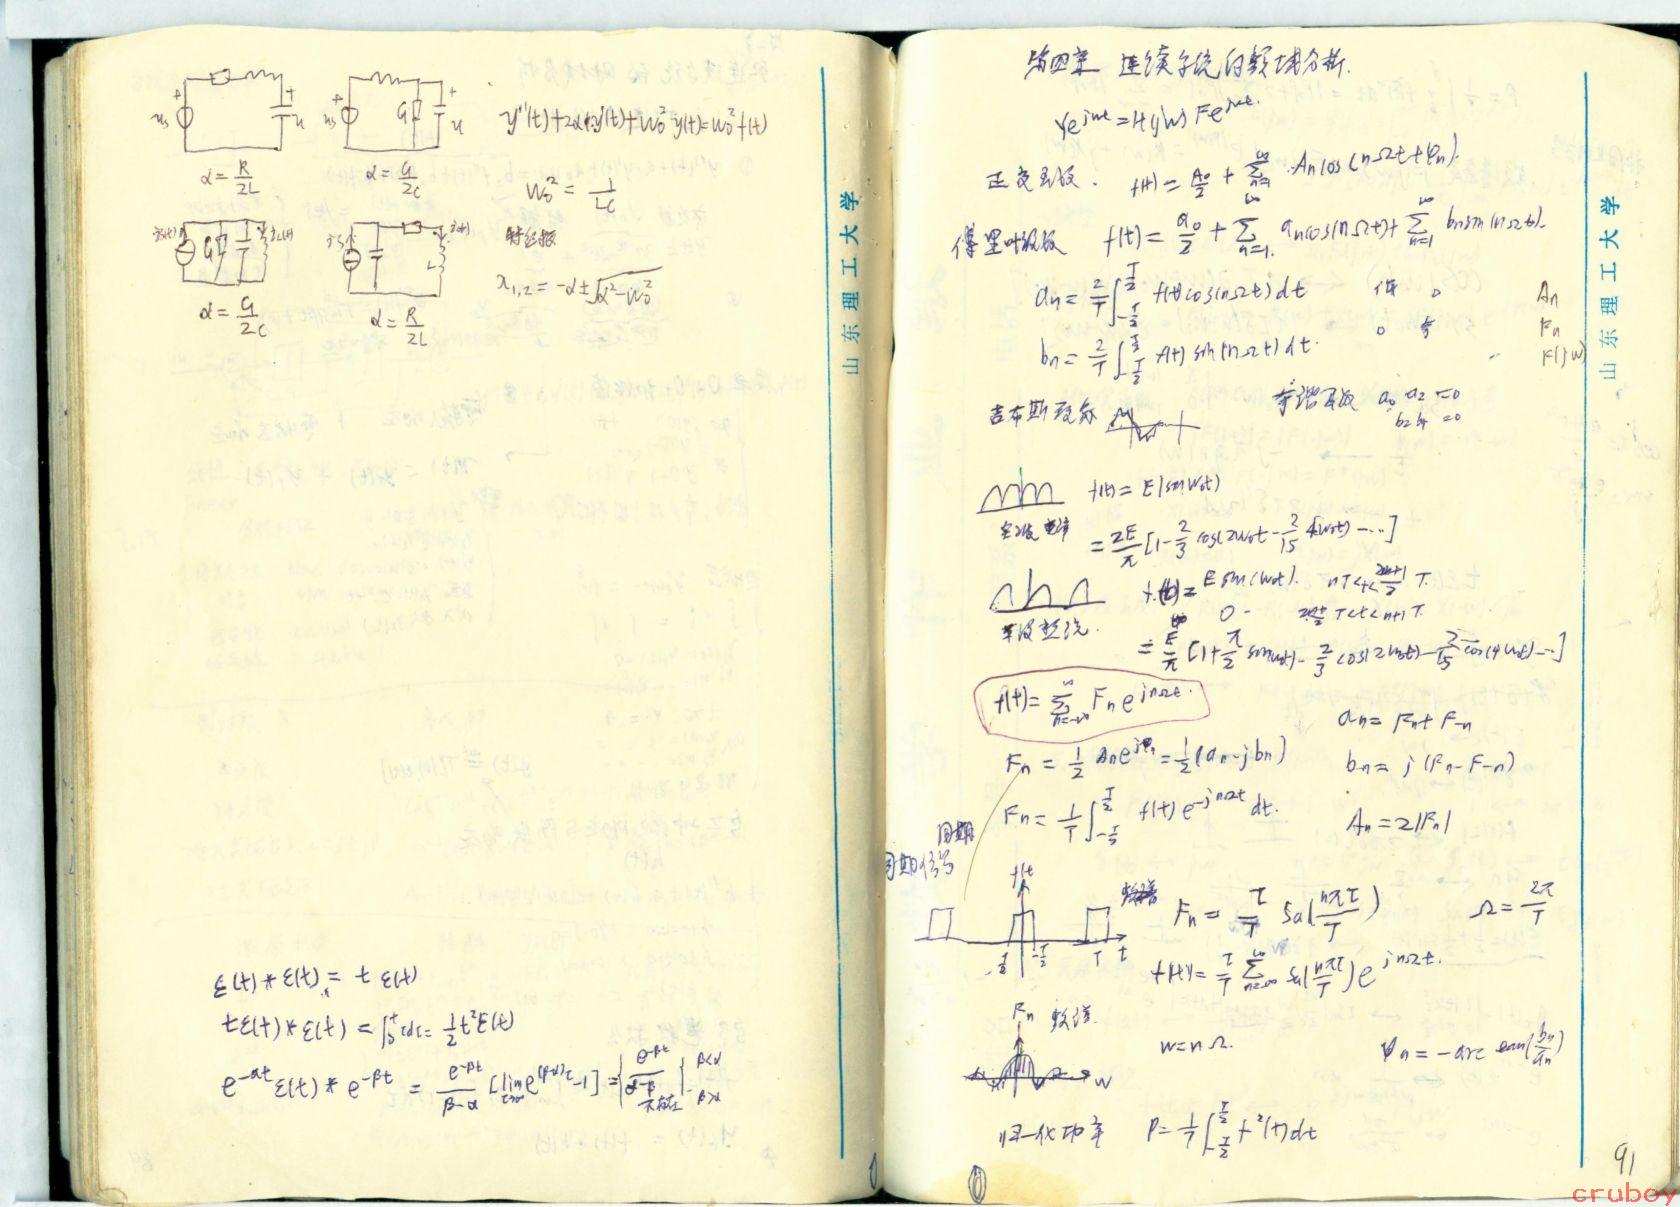 y''(t)+2αy'(t)+ω₀²y(t)=ω₀²f(t)
α=R/2L
α=G/2C
ω₀²=1/LC
特征根
α=G/2C
α=R/2L
x₁,₂=-α±√(α²-ω₀²)
ε(t)*ε(t)=tε(t)
tε(t)*ε(t)=∫₀ᵗτdτ=½t²ε(t)
山东理工大学
第四章 连续系统的频域分析.
Ye^{jωt}=H(jω)Fe^{jωt}.
正交函数. f(t)=A₀/2+∑_{n=1}^{∞}Aₙcos(nΩt+φₙ).
傅里叶级数 f(t)=a₀/2+∑_{n=1}^{∞}aₙcos(nΩt)+∑_{n=1}^{∞}bₙsin(nΩt).
aₙ=2/T∫_{-T/2}^{T/2}f(t)cos(nΩt)dt 偶 0
0 奇
bₙ=2/T∫_{-T/2}^{T/2}f(t)sin(nΩt)dt.
Aₙ
Fₙ
F(jω)
吉布斯现象
奇谐函数 a₀ a₂=0
b₂b₄=0
f(t)=E|sinω₀t|
=2E/π[1-2/3cos(2ω₀t-2/15 4ω₀t)-…]
f(t)=Esin(ω₀t). nT<t<(2n+1)/2 T.
0
半波整流.
=E/π[1+π/2sin(ω₀t)-2/3cos(2ω₀t)-2/15cos(4ω₀t)-…]
f(t)=∑_{n=-∞}^{∞}Fₙe^{jnΩt}.
aₙ=Fₙ+F₋ₙ
Fₙ=½Aₙe^{jφₙ}=½(aₙ-jbₙ)
bₙ=j(Fₙ-F₋ₙ)
Fₙ=1/T∫_{-T/2}^{T/2}f(t)e^{-jnΩt}dt.
Aₙ=2|Fₙ|
周期
周期信号
f(t)
Fₙ=τ/T Sa(nπτ/T)
Ω=2π/T
T t
f(t)=τ/T∑_{n=-∞}^{∞}Sa(nπτ/T)e^{jnΩt}.
Fₙ 频谱.
ω=nΩ.
φₙ=-arctan(bₙ/aₙ)
ω
归一化功率 P=1/T∫_{-T/2}^{T/2}f²(t)dt
山东理工大学
91
cruboy